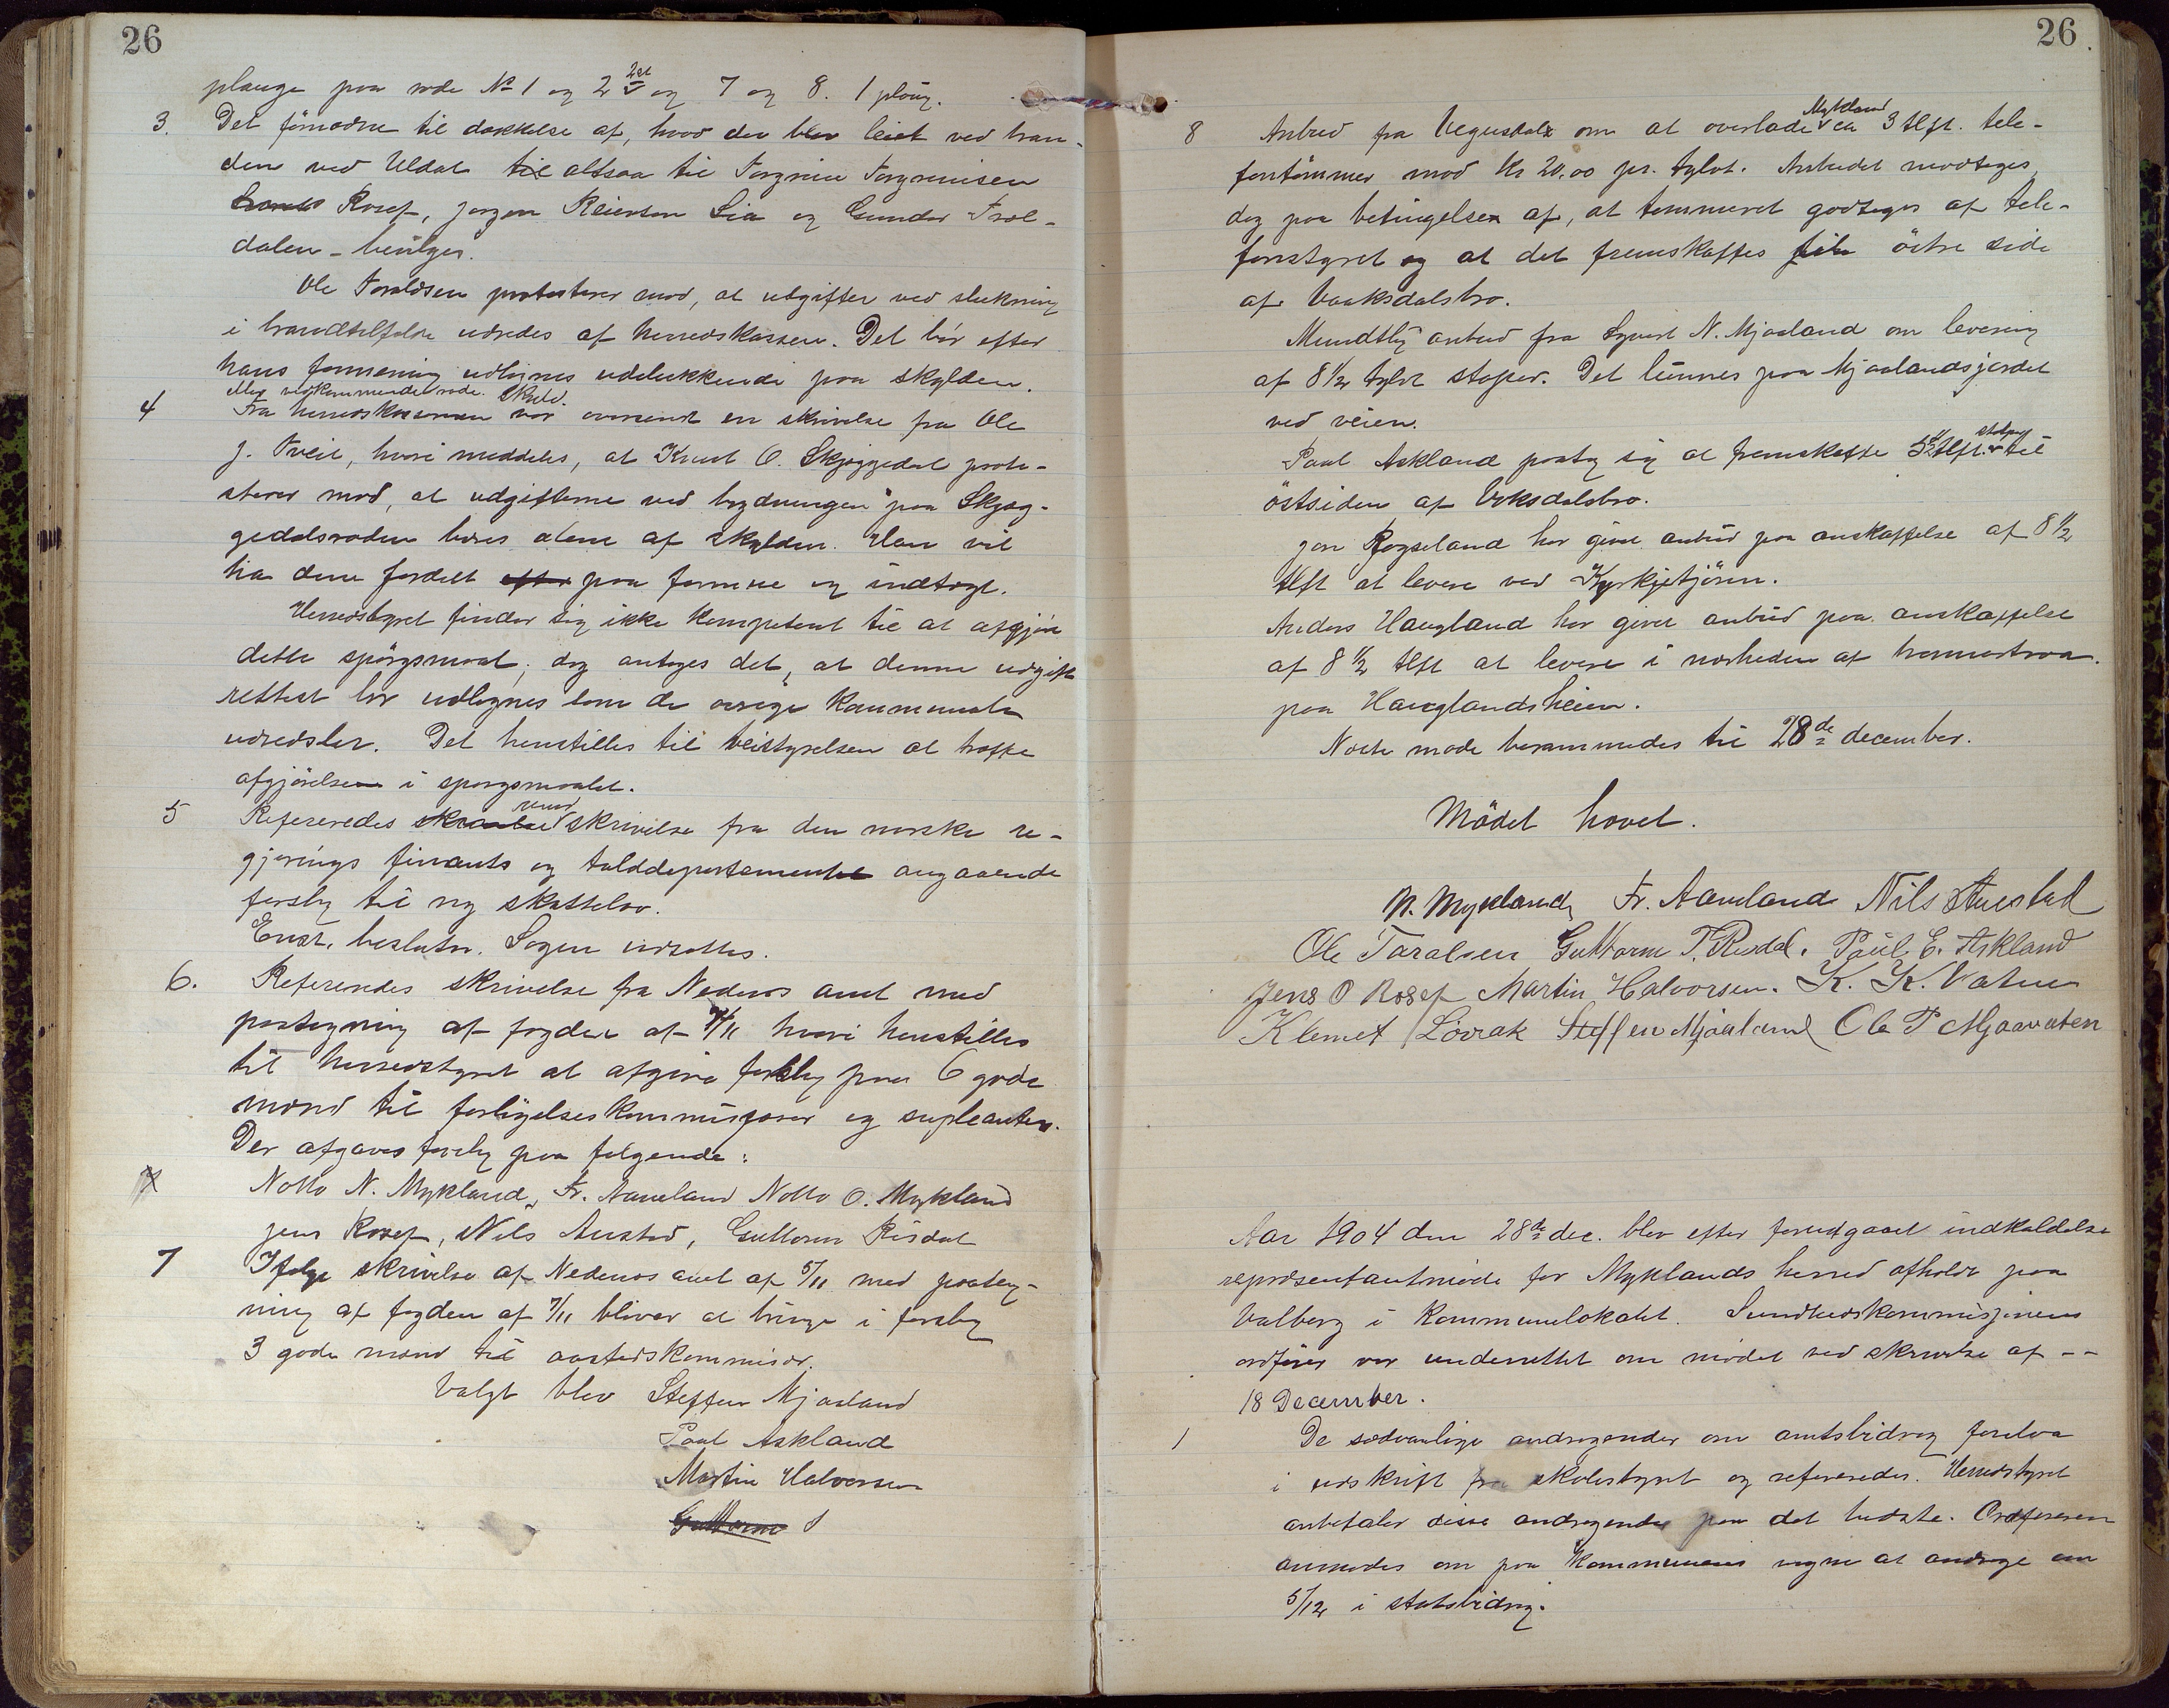 26
plauge paa rode No 1 og 2 2det og 7 og 8. 1 ploug.
3. Det fornødne til dækkelse af, hvad der blev leiet ved bran-
den ved Uldal til altsaa til Torgrim Torgrimsen
Rosef, Jørgen Reiersen Lia og Gunder Træl-
dalen - bevilges.
Ole Taraldsen protesterer mod, at utgifter ved slukning
i brandtilfælde udredes af herredskassen. Det bør efter
hans formening udlignes udelukkende paa skylden.
vedkommende rode. Skyld.
4 Fra herredskassereren var oversendt en skrivelse fra Ole
J. Tveit, hvori meddeles, at Knut O. Skjeggedal prote-
sterer mod, at udgifterne ved brydningen paa Skjæg-
gedalsroden bæres alene af skylden. Han vil
ha dem fordelt efter paa formue og indtægt.
Herredstyret finder sig ikke kompetent til at afgjøre
dette spørgsmaal; dog antages det, at denne udgift
rettest bør udlignes som de øvrige kommunale
udredsler. Det henstilles til veistyrelsen at træffe
afgjørelsen i spørgsmaalet.
5 Refereredes skrivelse fra den norske re-
gjerings finants og tolddepartement angaaende
forslag til ny skattelov.
Enst. beslutn. Sagen udsættes.
6. Refereredes skrivelse fra Nedenes amt med
paategning af fogden af 7/11 hvori henstilles
til herredstyret at afgive forslag paa 6 gode
mænd til forligelseskommissærer og supleanter.
Der afgaves forslag paa følgende:
Notto N. Mykland, Fr. Aaneland Notto O. Mykland
Jens Rosef, Nils Austad, Guttorm Risdal
7 Ifølge skrivelse af Nedenes amt af 5/11 med paateg-
ning af fogden af 7/11 bliver at bringe i forslag
3 gode mænd til aastedskommisær.
Valgt blev Steffen Mjaaland
Paul Askland
Martin Halvorsen
Guttorm S
26.
8 Anbud fra Vegusdal om at overlade Mykland ca 3 tlft. tele-
fontømmer mod Kr 20.00 pr. tylvt. Anbudet modtages,
dog paa betingelse af, at tømmeret godtages af tele-
fonstyret og at det fremskaffes til østre side
af Vaaksdalsbro.
Mundtlig anbud fra Syvert N. Mjaaland om levering
af 8 1/2 tylvt stolper. Det lunnes paa Mjaalandsjordet
ved veien.
Paul Askland paatog sig at fremskaffe 5 1/2 tlft. stolper til
østsiden af Voksdalsbro.
Jon Røgseland har givet anbud paa anskaffelse af 8 1/2
tlft at levere ved Kyrkjetjønn.
Anders Haugland har givet anbud paa anskaffelse
af 8 1/2 tlft at levere i nærheden af
paa Hauglandsheien.
Næste møde berammedes til 28de december.
Mødet hævet.
N. Mykland, Fr. Aaneland Nils Austad
Ole Taralsen Guttorm T. Risdal. Paul E. Askland
Jens O Rosef Martin Halvorsen. K. K. Vatne
Klemet Lovrak Steffen Mjaaland Ole P Mjaavaten
Aar 1904 den 28de dec. blev efter forudgaaet indkaldelse
repræsentantmøde for Myklands herred afholdt paa
Valberg i Kommunelokalet. Sundhedskommisjonens
ordfører var underrettet om mødet ved skrivelse af --
18 December.
1 De sædvanlige andragender om amtsbidrag forelaa
i udskrift fra skolestyret og refereredes. Herredstyret
anbefaler disse andragender paa det bedste. Ordføreren
anmodes om paa Kommunens vegne at andrage om
5/12 i statsbidrag.